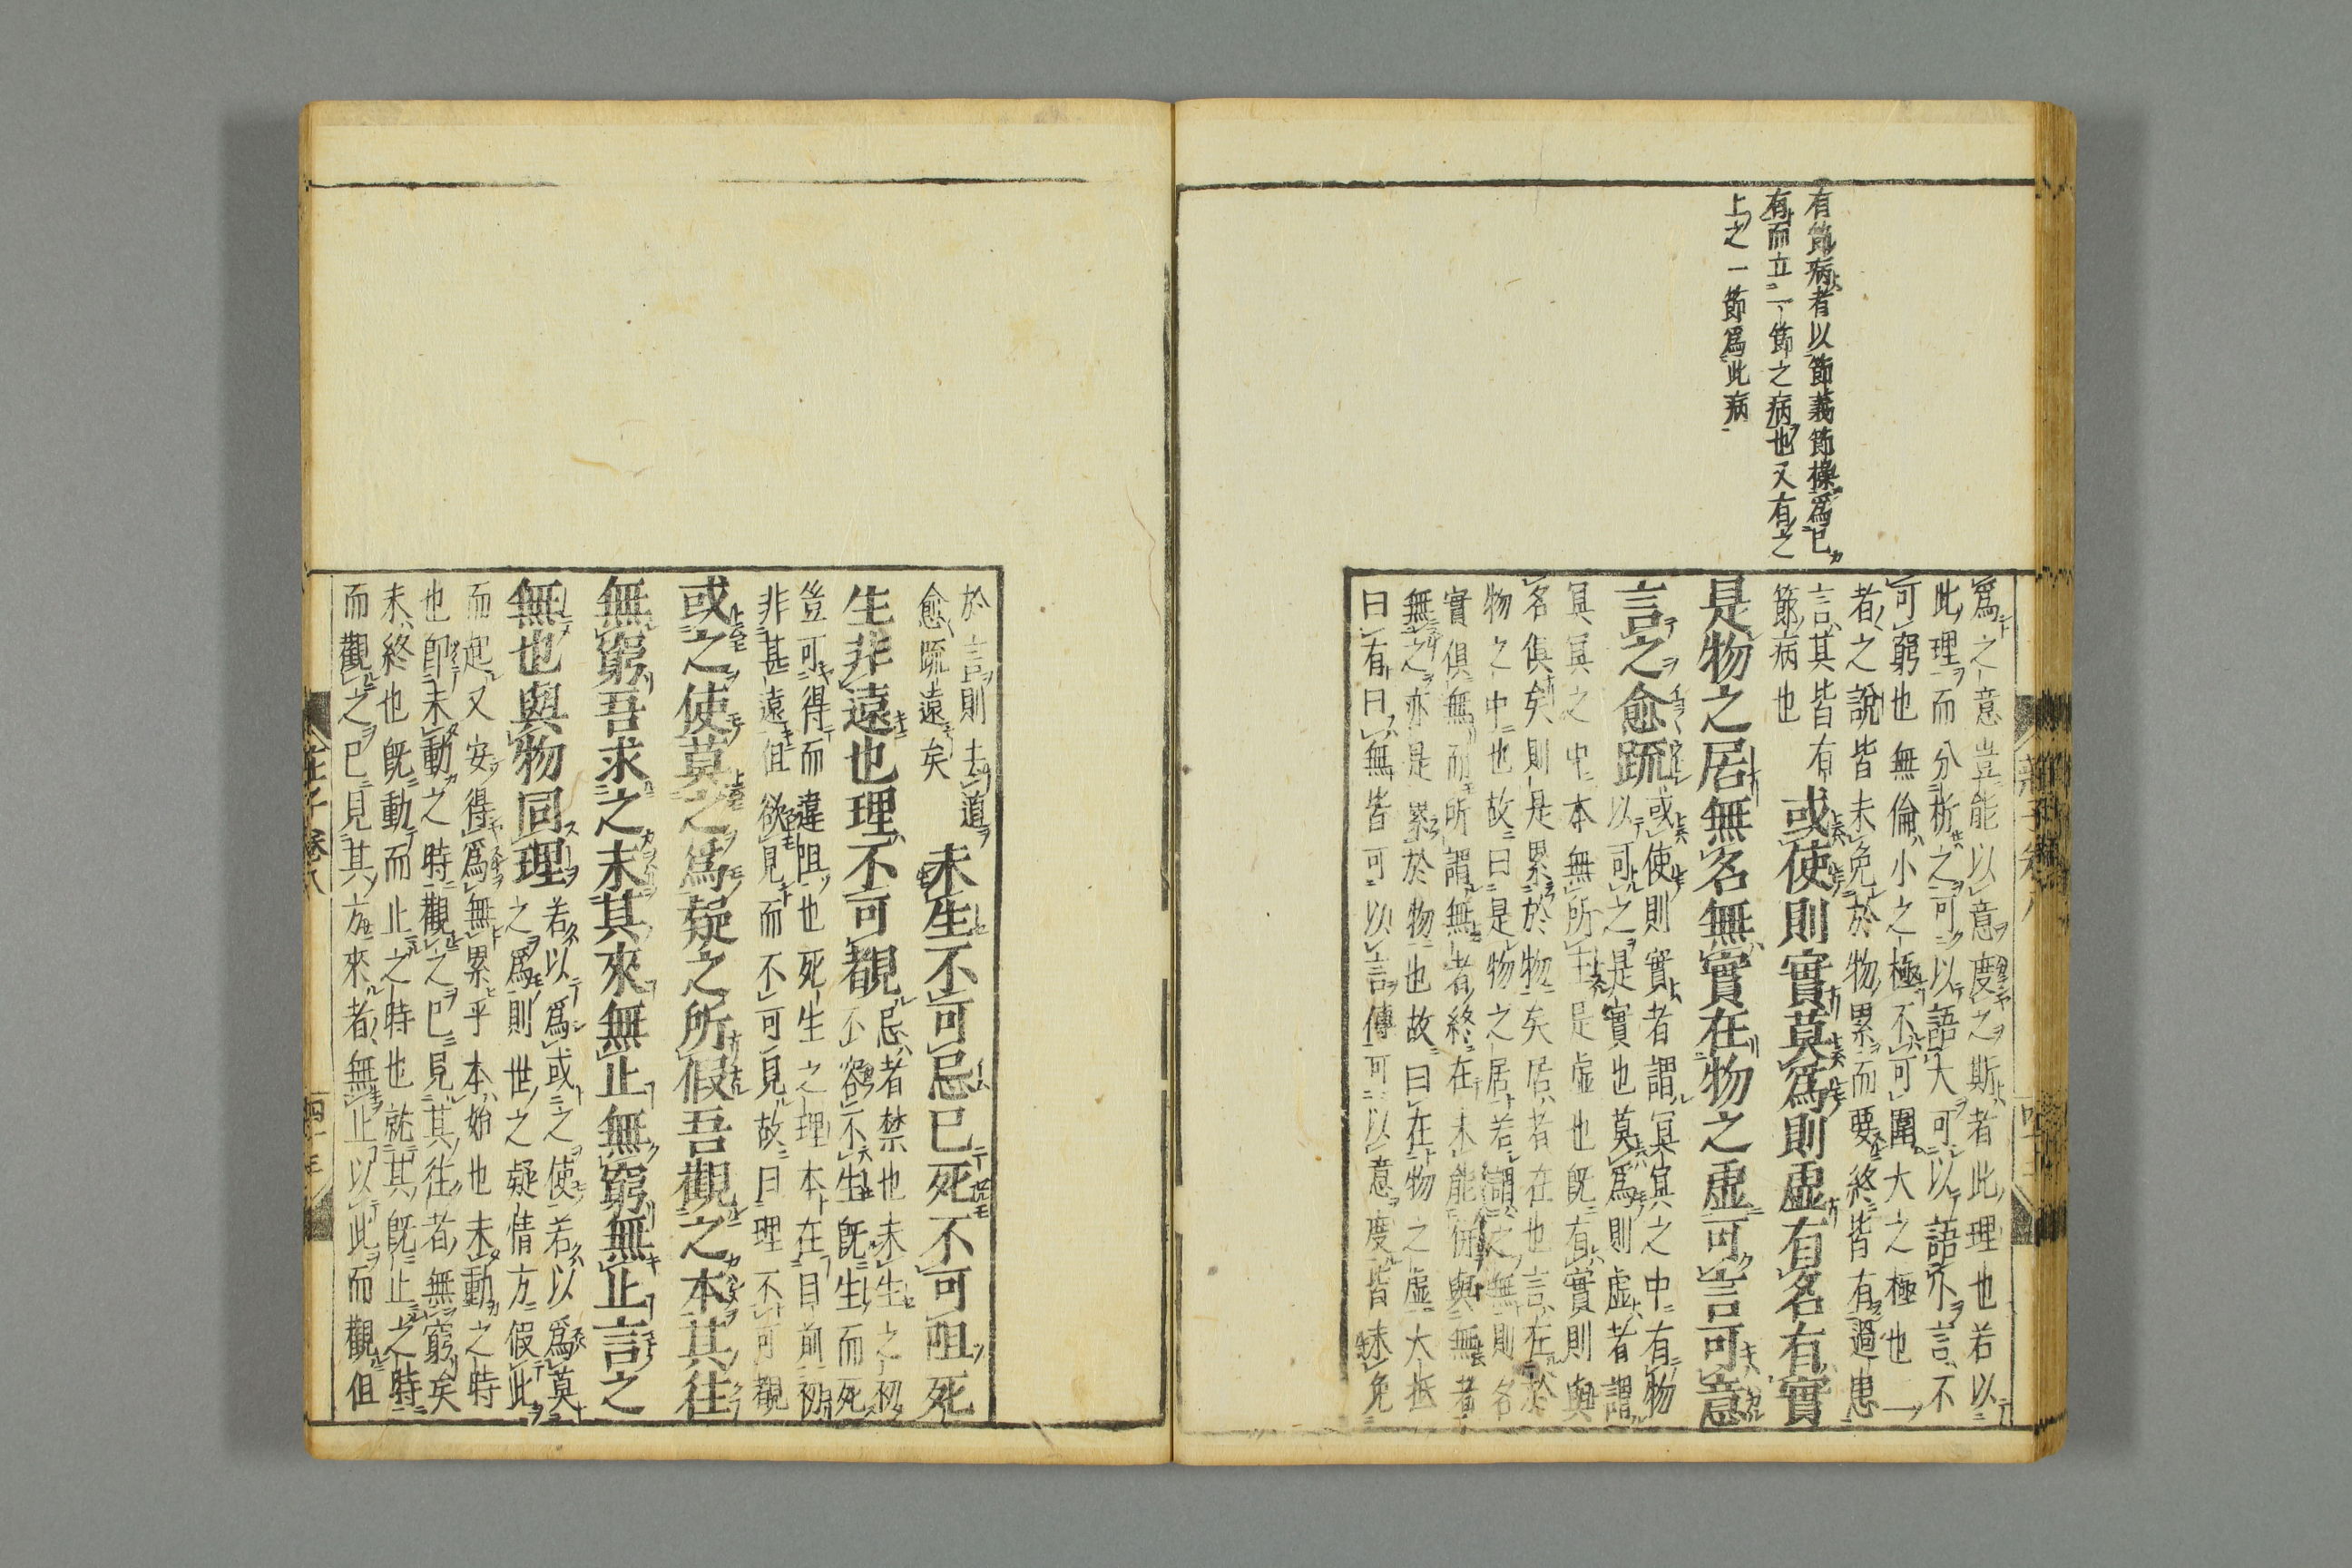 有節病者以節義節操爲已
有而立一節之病也又有之
上之一節爲此病
爲之意豈能以意度之斯者此理也若以
此理而分析之可以語大可以語小言不
可窮也無倫小之極不可圍大之極也一
者之說皆未免於物累而要終皆有過患
言其皆有
節病也
或使則實莫爲則虛有名有實
是物之居無名無實在物之虛可言可意
言之愈疏
或使則實者謂冥冥之中有物
以可之是實也莫爲則虛者謂
冥冥之中本無所主是虛也既有實則與
名俱矣則是累於物矣居者在也言在於
物之中也故曰是物之居若謂之無則名
實俱無而所謂無者終在未能併與無者
無之亦是累於物也故曰在物之虛大抵
曰有曰無皆可以言傳可以意度皆未免
於言則去道
愈疏遠矣
未生不可忌已死不可阻死
生非遠也理不可覩
忌者禁也未生之初
不容不生既生而死
豈可得而違阻也死生之理本在目前初
非甚遠但欲見而不可見故曰理不可觀
或之使莫之爲疑之所假吾觀之本其往
無窮吾求之末其來無止無窮無止言之
無也與物同理
若以爲或之使若以爲莫
之爲則世之疑情方假此
而起又安得爲無累乎本始也未動之時
也即未動之時觀之已見其往者無窮矣
末終也既動而止之時也就其既止之時
而觀之已見其方來者無止以此而觀但
莊子卷八